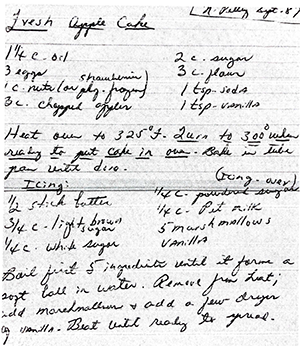 Fresh Apple Cake
1 1/4 c. oil 2 c. sugar
3 eggs 3 c. flour
1 c. nuts (or pkg. frozen strawberries) 1 tsp. soda
3 c. chopped apples 1 tsp. vanilla
Heat oven to 325° F. Turn to 300° when
ready to put cake in oven. Bake in tube
pan until done.
(Icing over)
Icing:
1/2 stick butter 1/4 c. powdered sugar
3/4 c. light brown sugar 1/4 c. Pet milk
1/4 c. white sugar 5 marshmallows
vanilla
Boil first 5 ingredients until it forms a
soft ball in water. Remove from heat,
add marshmallows & add a few drops
vanilla. Beat until ready to spread.